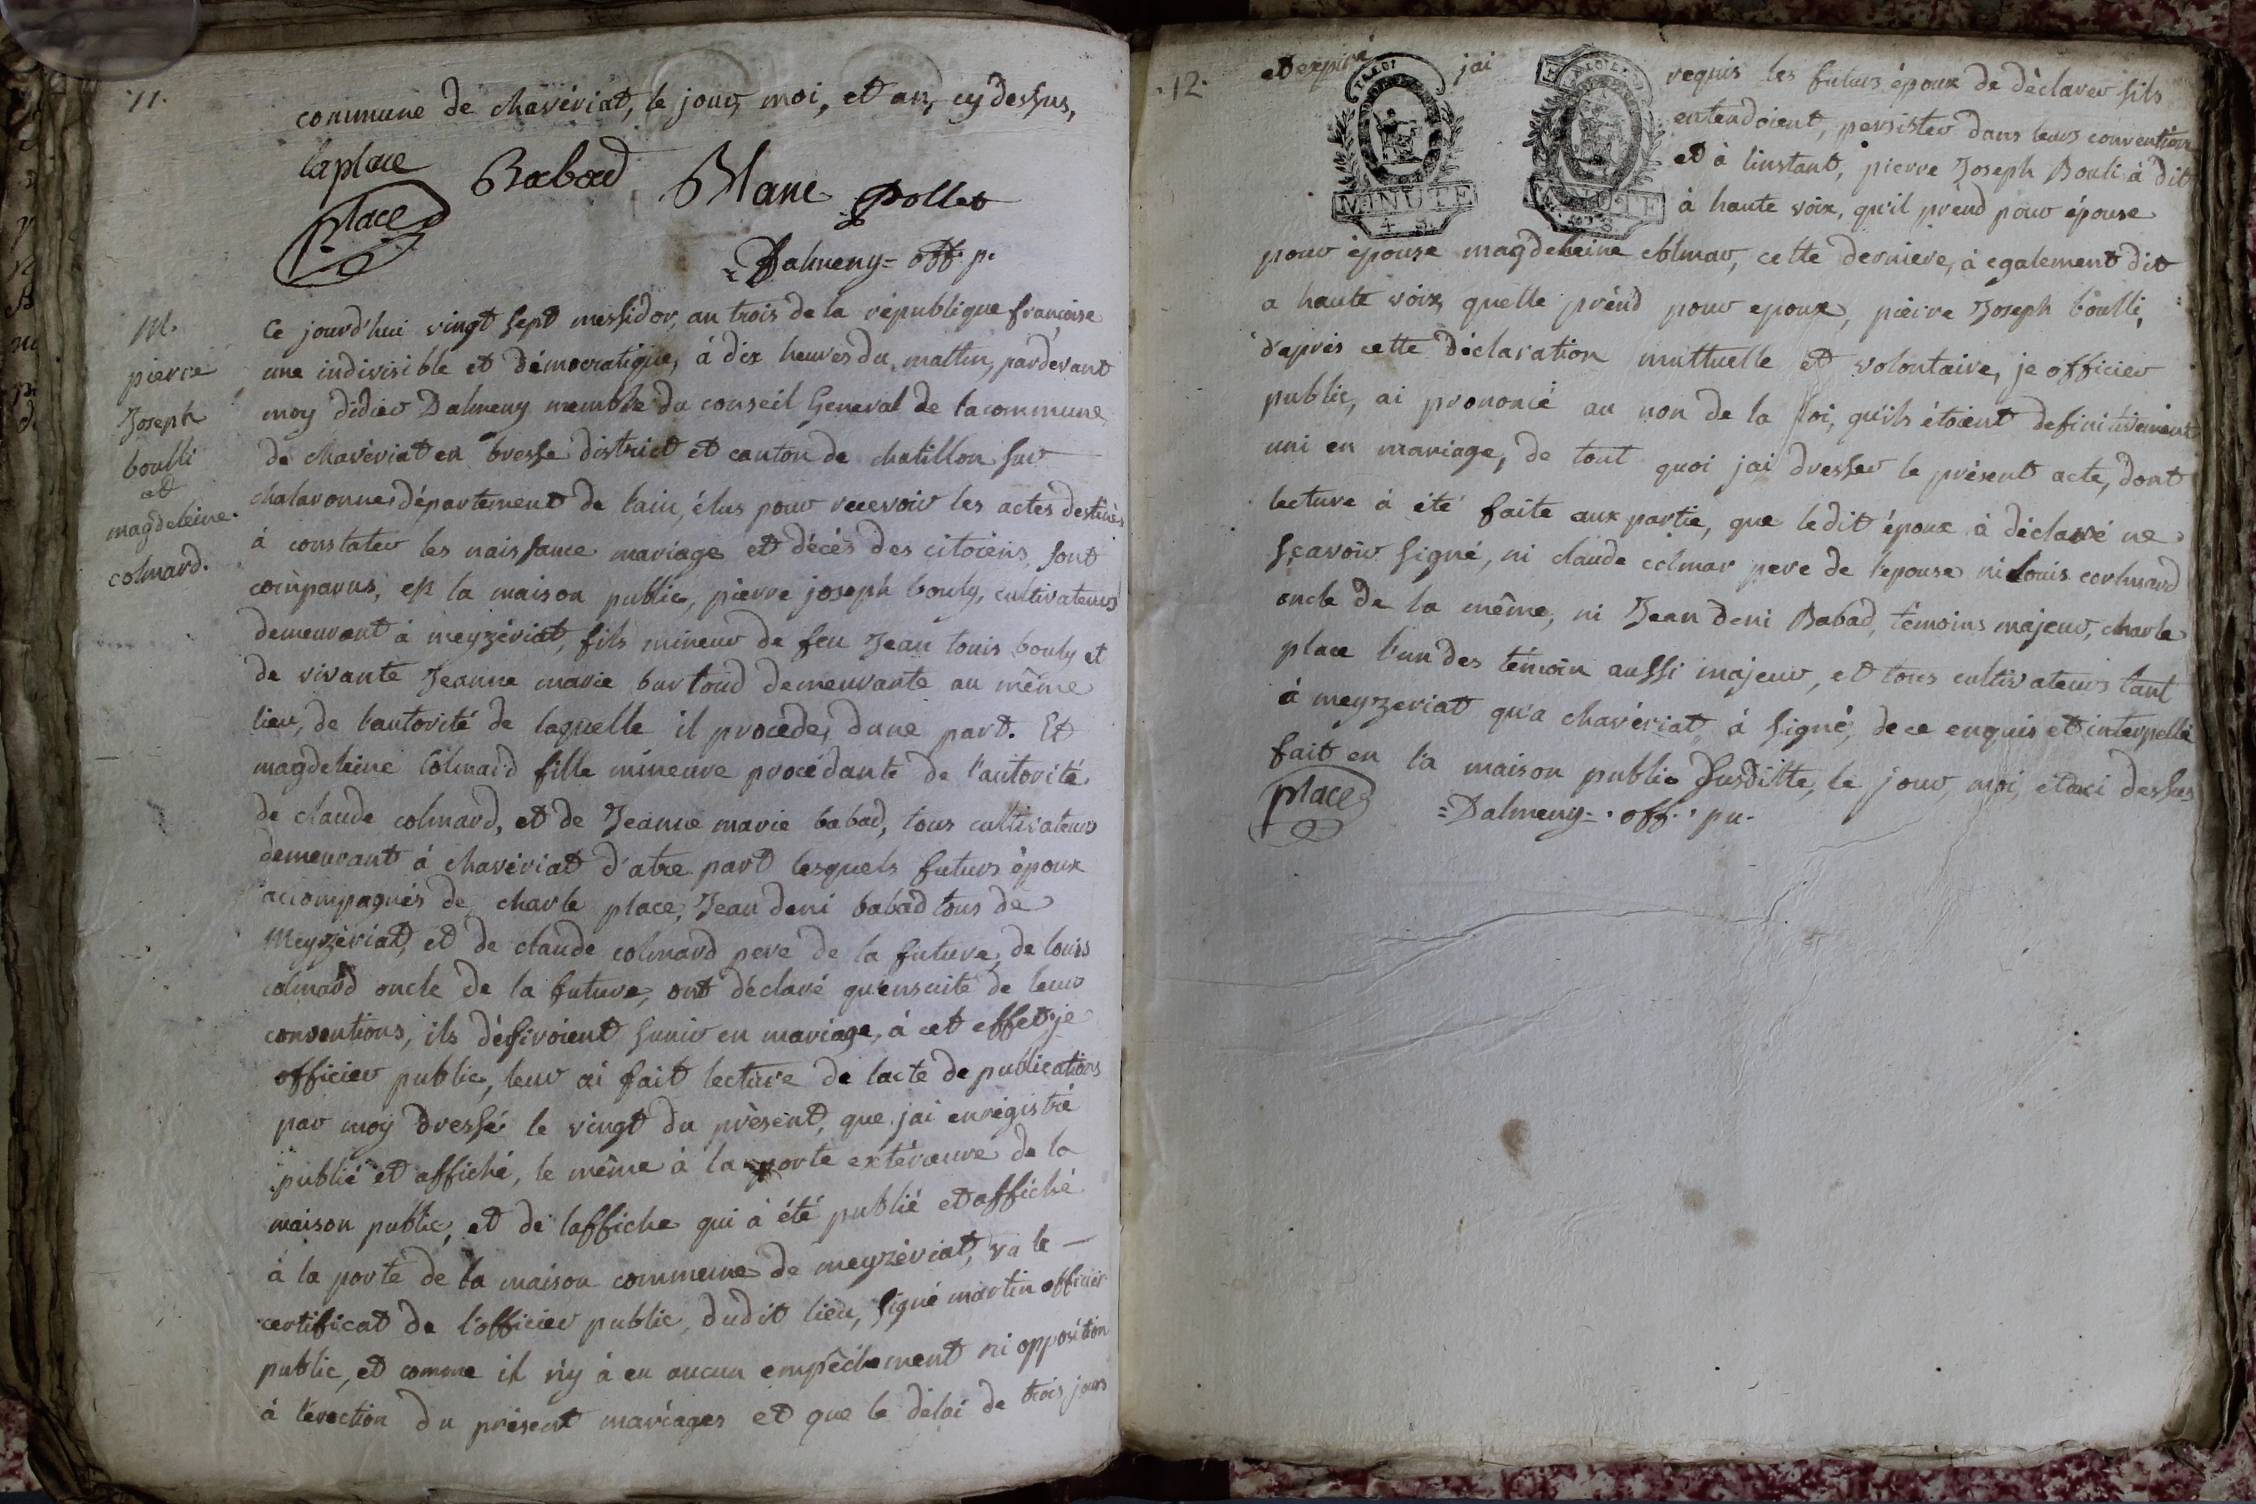 11.
commune de chavériat, le jour, moi, et an, cy dessus,
laplace
Babad
Blanc
pollet
place
Dalmeny = off. p.
M.
pierre
Joseph
boulli
et
magdeleine
colmard.
Ce jourd'hui vingt sept messidor, an trois de la république françoise
une indivisible et démocratique, à dix heures du mattin, pardevant
moy didier Dalmeny membre du conseil General de la commune
de chavériat en bresse district et canton de chatillon sur
chalaronne département de l'ain, élus pour recevoir les actes destinés
à constater les naissance mariage et décès des citoiens, sont
comparus, en la maison public, pierre joseph bouly, cultivateurs
demeurant à meyzériat, fils mineur de feu Jean louis bouly et
de vivante Jeanne marie burtoud demeurante au même
lieu, de l'autorité de laquelle il procéde, d'une part. Et
magdeleine Colmard fille mineure procédante de l'autorité
de claude colmard, et de Jeanne marie babad, tous cultivateurs
demeurant à chavériat d'atre part lesquels futurs époux
accompagnés de charle place, Jean deni babad tous de
Meyzériat, et de claude colmard pere de la future, de louis
colmard oncle de la future, ont déclaré qu'ensuite de leur
conventions, ils désiroient sunir en mariage, à cet effet je
officier public, leur ai fait lecture de lacte de publications
par moy dressé le vingt du présent, que jai enregistré
publié et affiché, le même à la porte extérieure de la
maison public, et de laffiche qui à été publié et affiché
à la porte de la maison commune de meyzériat, va le
certificat de l'officier public, dudit lieu, signé martin officier
public, et comme il n'y à eu aucun empêchement ni opposition
à l'érection du présent mariages et que le délai de trois jours
12.
et expiré jai requis les futurs époux de déclarer sils
entendoient, persister dans leurs conventions
et à linstant, pierre Joseph Bouli à dit
à haute voix, qu'il prend pour épouse
LA LOI
MINUTE
4 S.
MINUTE
pour épouse magdeleine colmar, cette derniere, à egalement dit
a haute voix quelle prend pour epoux, pierre Joseph boulli,
d'apris cette déclaration muttuelle et volontaire, je officier
public, ai prononcé au non de la loi, qu'ils étoient definitivement
uni en mariage, de tout quoi jai dresser le présent acte, dont
lecture à été faite aux partie, que ledit époux à déclaré ne
sçavoir signé, ni claude colmar pere de lepouse ni louis corlmard
oncle de la même, ni Jean deni Babad, témoins majeur, charle
place l'un des témoin aussi majeur, et tous cultivateurs tant
à meyzeriat qu'a chavériat, à signé, de ce enquis et interpellé
fait en la maison public susditte, le jour, moi, et an ci dessus
place
= Dalmeny = . off. pu.